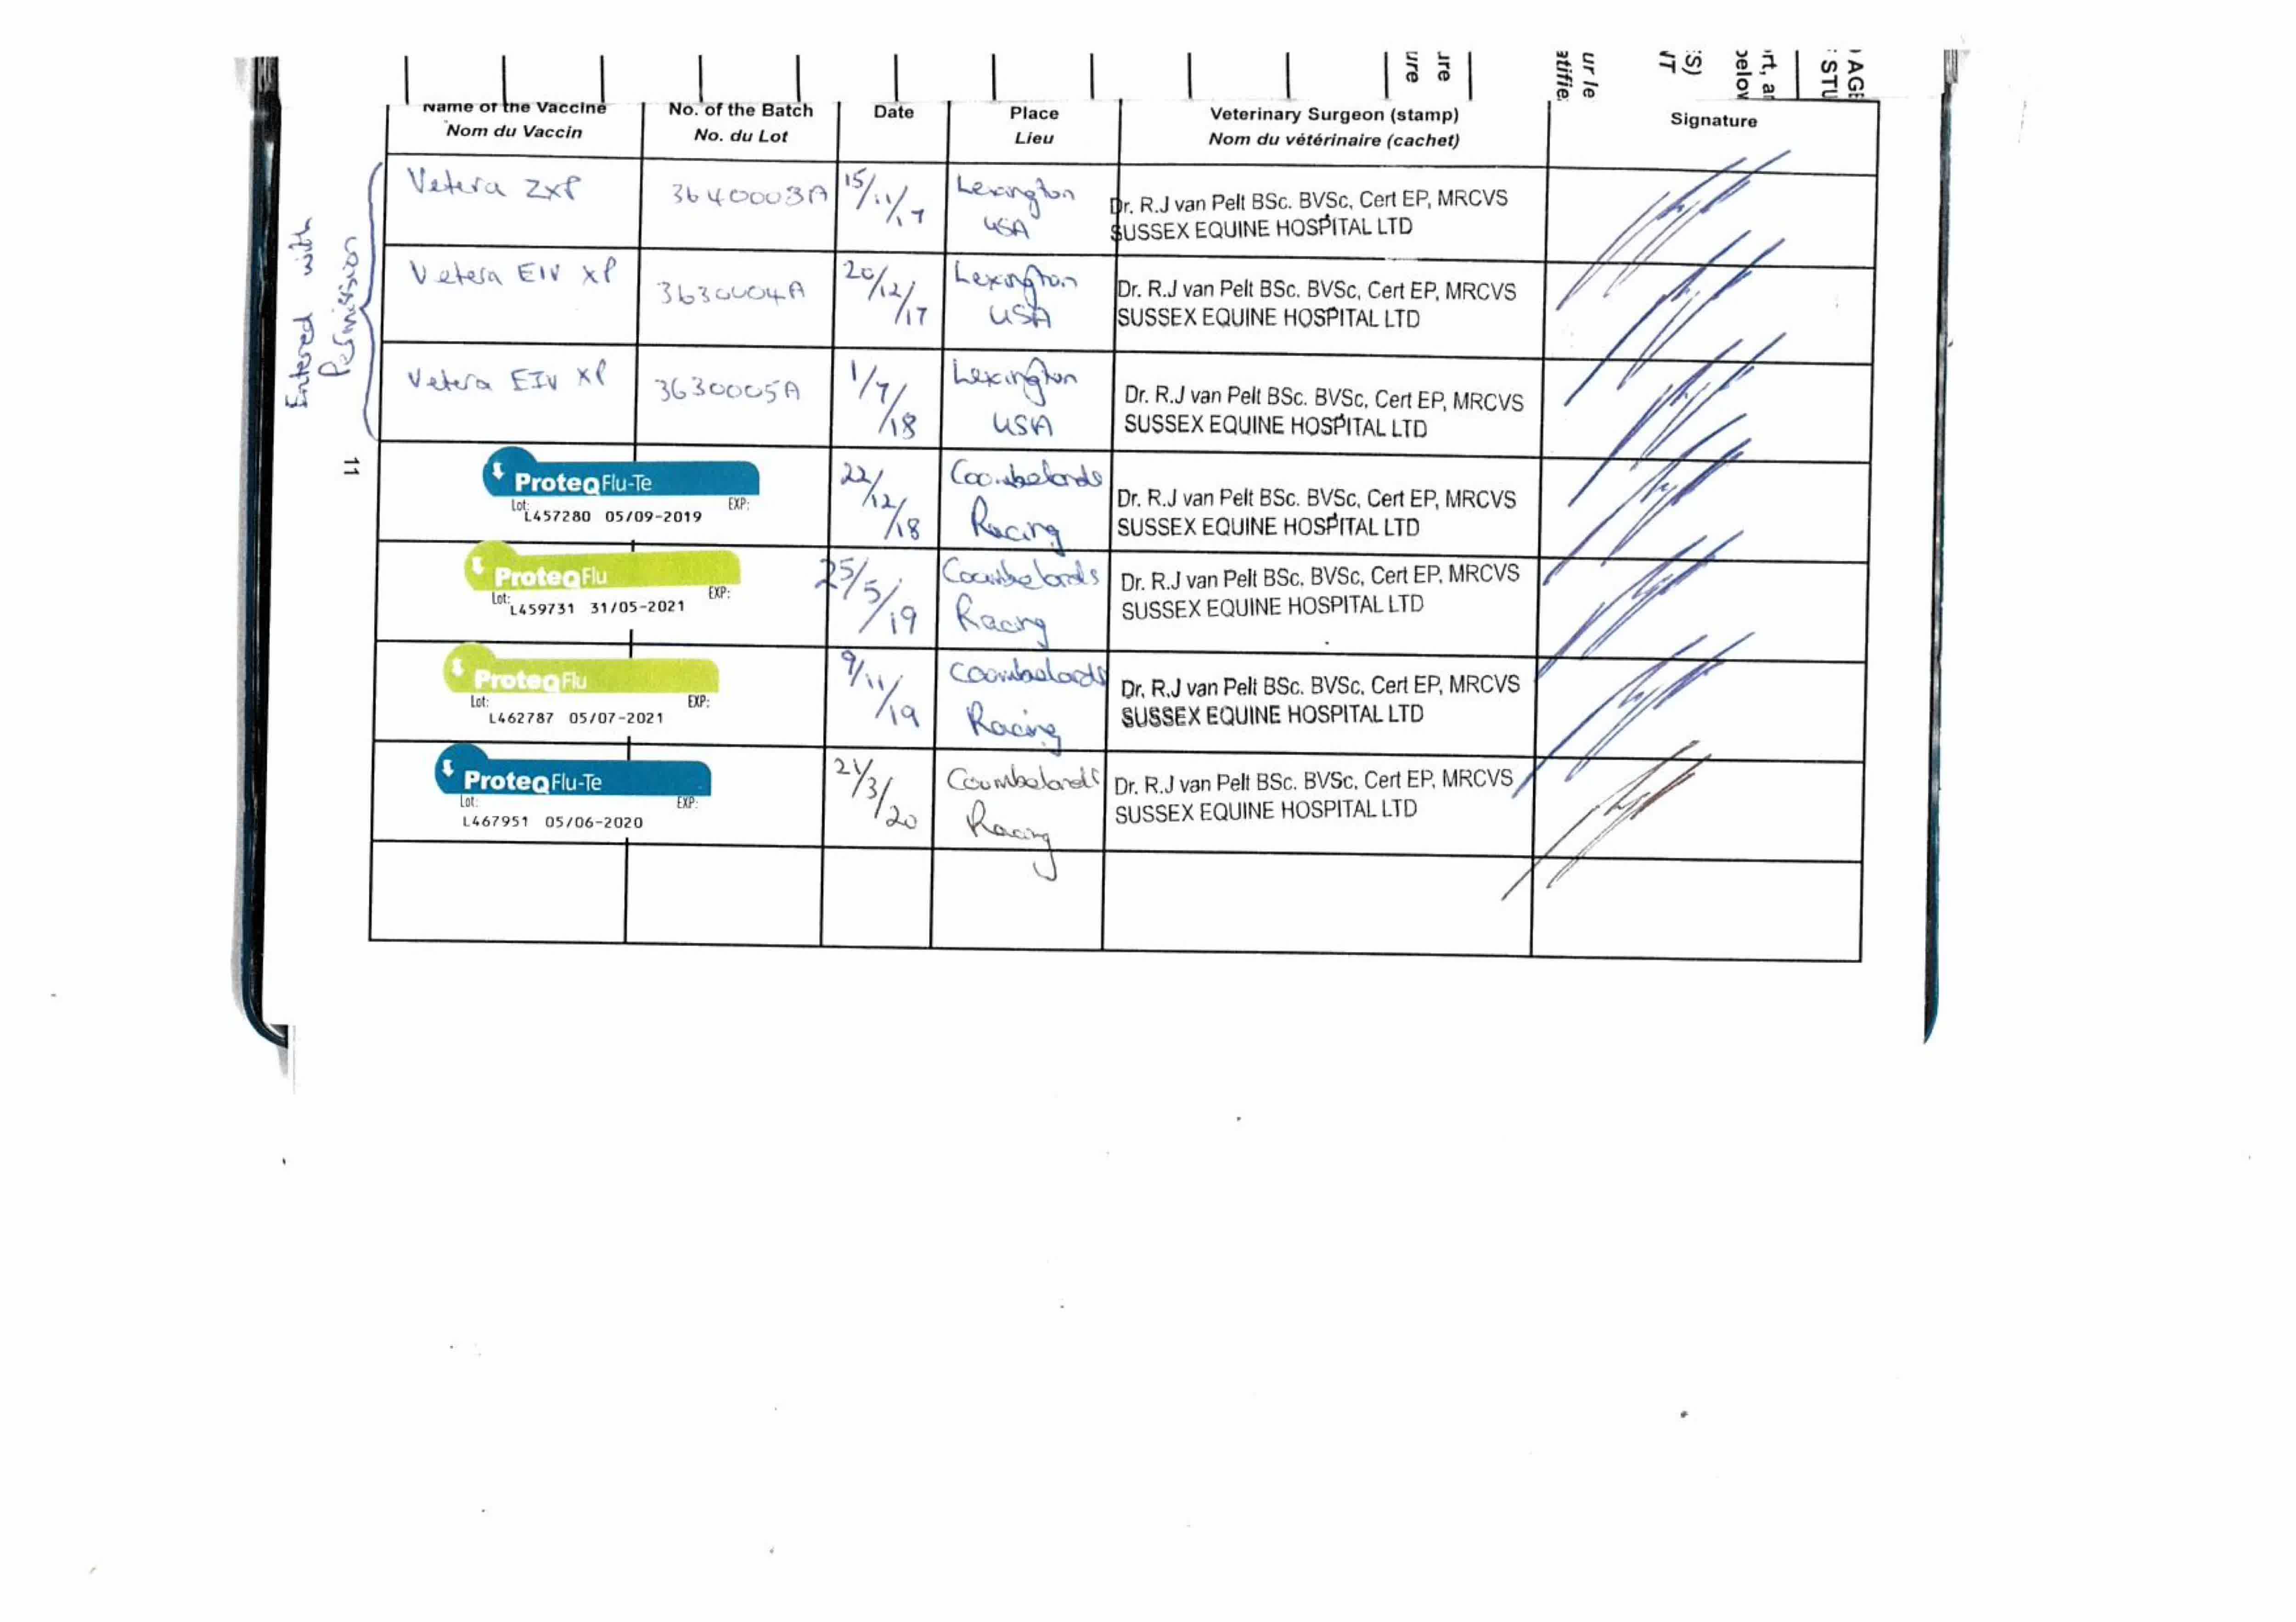 ure
ure
ur le
atifie
(S)
NT
rt, a
below
AGE
STU
Name of the Vaccine
Nom du Vaccin
No. of the Batch
No. du Lot
Date
Place
Lieu
Veterinary Surgeon (stamp)
Nom du vétérinaire (cachet)
Signature
Entered with
Permission
Vetera 2xP
36400003A
15/11/17
Lexington
USA
Dr. R.J van Pelt BSc. BVSc, Cert EP, MRCVS
SUSSEX EQUINE HOSPITAL LTD
Vetera EIV XP
3630004A
20/12/17
Lexington
USA
Dr. R.J van Pelt BSc. BVSc, Cert EP, MRCVS
SUSSEX EQUINE HOSPITAL LTD
Vetera EIV XP
3630005A
1/7/18
Lexington
USA
Dr. R.J van Pelt BSc. BVSc, Cert EP, MRCVS
SUSSEX EQUINE HOSPITAL LTD
11
ProteqFlu-Te
Lot: EXP:
L457280 05/09-2019
22/12/18
Coombelands
Racing
Dr. R.J van Pelt BSc. BVSc, Cert EP, MRCVS
SUSSEX EQUINE HOSPITAL LTD
ProteqFlu
Lot: EXP:
L459731 31/05-2021
25/5/19
Coombelands
Racing
Dr. R.J van Pelt BSc. BVSc, Cert EP, MRCVS
SUSSEX EQUINE HOSPITAL LTD
ProteqFlu
Lot: EXP:
L462787 05/07-2021
9/11/19
Coombelands
Racing
Dr. R.J van Pelt BSc. BVSc, Cert EP, MRCVS
SUSSEX EQUINE HOSPITAL LTD
ProteqFlu-Te
Lot: EXP:
L467951 05/06-2020
21/3/20
Coombelands
Racing
Dr. R.J van Pelt BSc. BVSc, Cert EP, MRCVS
SUSSEX EQUINE HOSPITAL LTD